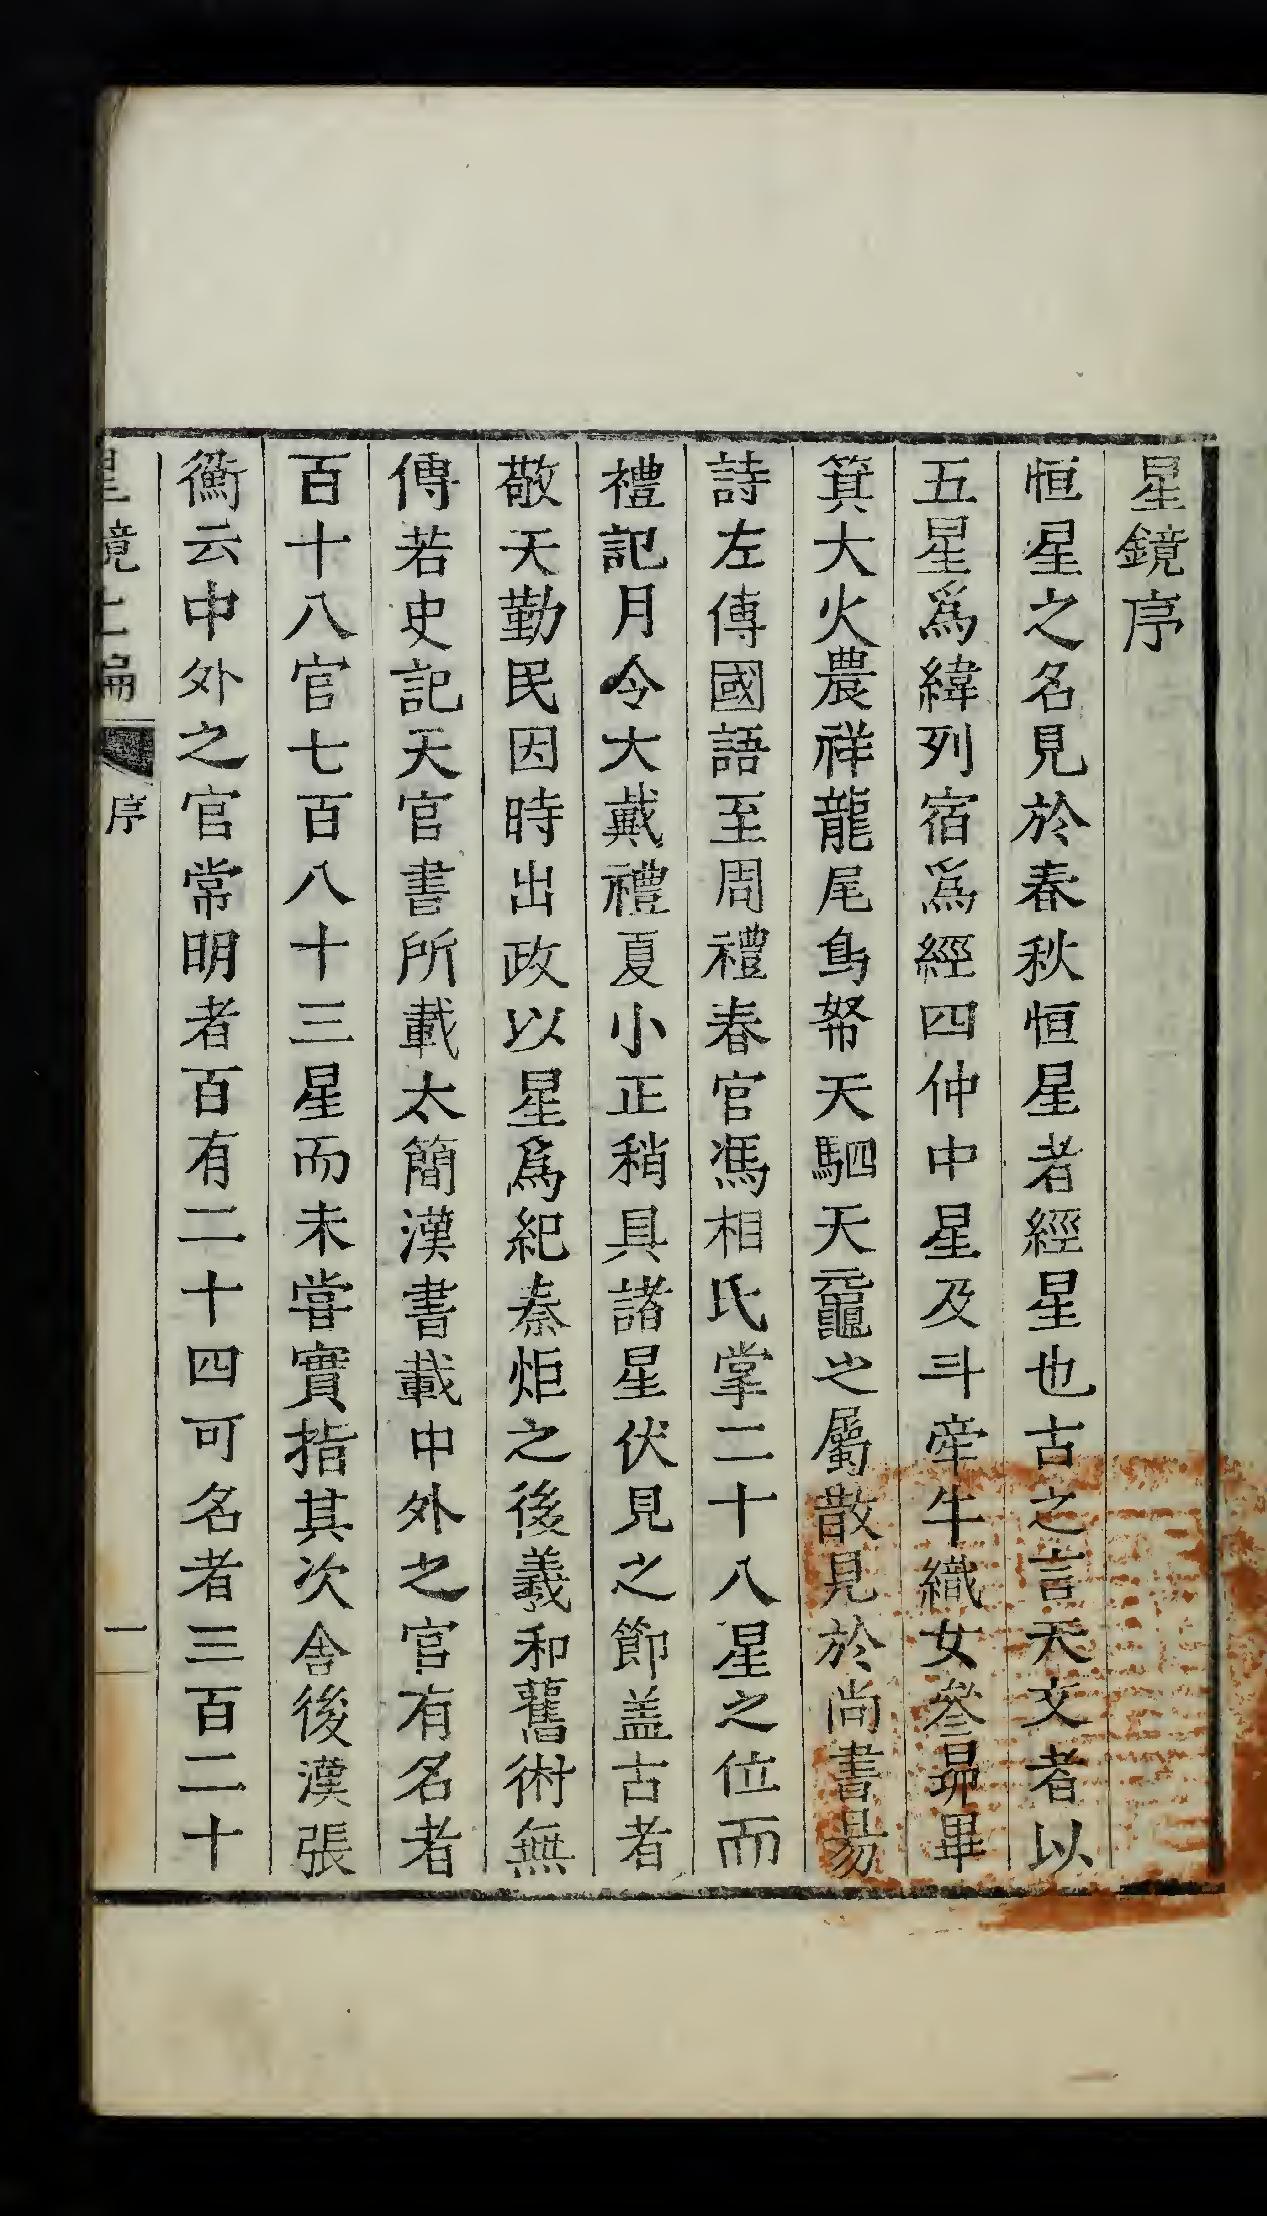 星鏡序
恒星之名見於春秋恒星者經星也古之言天文者以
五星爲緯列宿爲經四仲中星及斗牽牛織女參昴畢
箕大火農祥龍尾鳥帑天駟天黿之屬散見於尚書易
詩左傳國語至周禮春官馮相氏掌二十八星之位而
禮記月令大戴禮夏小正稍具諸星伏見之節盖古者
敬天勤民因時出政以星爲紀秦炬之後羲和舊術無
傳若史記天官書所載太簡漢書載中外之官有名者
百十八官七百八十三星而未嘗實指其次舍後漢張
衡云中外之官常明者百有二十四可名者三百二十
星鏡上編 序 一